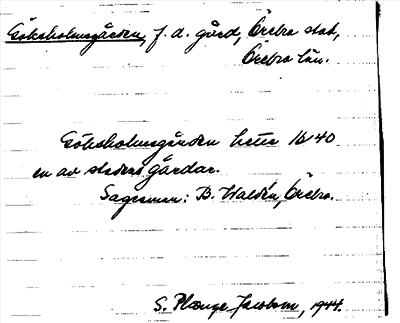 Göksholmsgården, f. d. gård, Örebro stad,
Örebro län.
Göksholmsgården heter 1640
en av stadens gårdar.
Sagesman: B. Waldén, Örebro.
S. Plænge Jacobson, 1944.